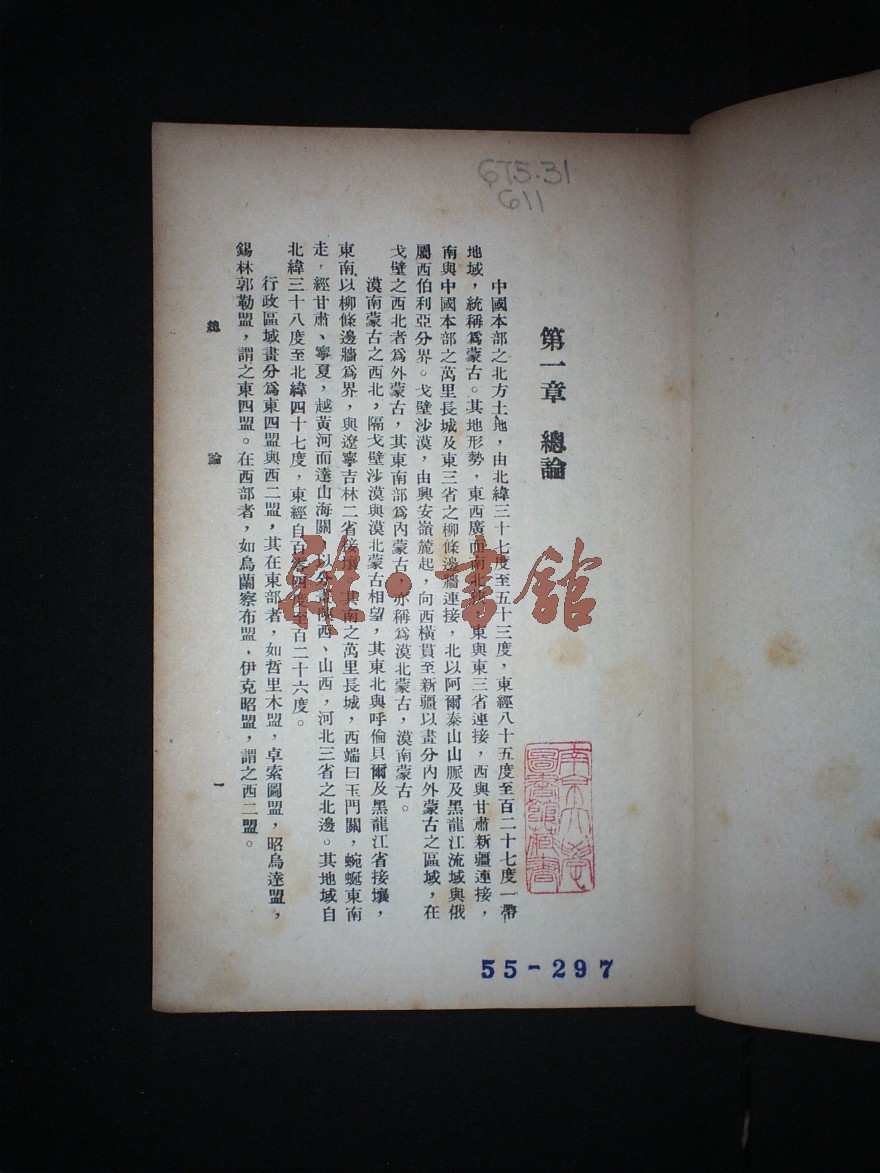 675.31
611
第一章　總論
中國本部之北方土地，由北緯三十七度至五十三度，東經八十五度至百二十七度一帶
地域，統稱爲蒙古。其地形勢，東西廣而南北狹，東與東三省連接，西與甘肅新疆連接，
南與中國本部之萬里長城及東三省之柳條邊牆連接，北以阿爾泰山山脈及黑龍江流域與俄
屬西伯利亞分界。戈壁沙漠，由興安嶺麓起，向西橫貫至新疆以畫分內外蒙古之區域，在
戈壁之西北者爲外蒙古，其東南部爲內蒙古，亦稱爲漠北蒙古，漠南蒙古。
漠南蒙古之西北，隔戈壁沙漠與漠北蒙古相望，其東北與呼倫貝爾及黑龍江省接壤，
東南以柳條邊牆爲界，與遼寧吉林二省接壤，其南之萬里長城，西端曰玉門關，蜿蜒東南
走，經甘肅、寧夏，越黃河而達山海關，以分陝西、山西，河北三省之北邊。其地域自
北緯三十八度至北緯四十七度，東經自百零四度至百二十六度。
行政區域畫分爲東四盟與西二盟，其在東部者，如哲里木盟，卓索圖盟，昭烏達盟，
錫林郭勒盟，謂之東四盟。在西部者，如烏蘭察布盟，伊克昭盟，謂之西二盟。
總　論
一
雜·書館
南京大學
圖書館藏書
55-297